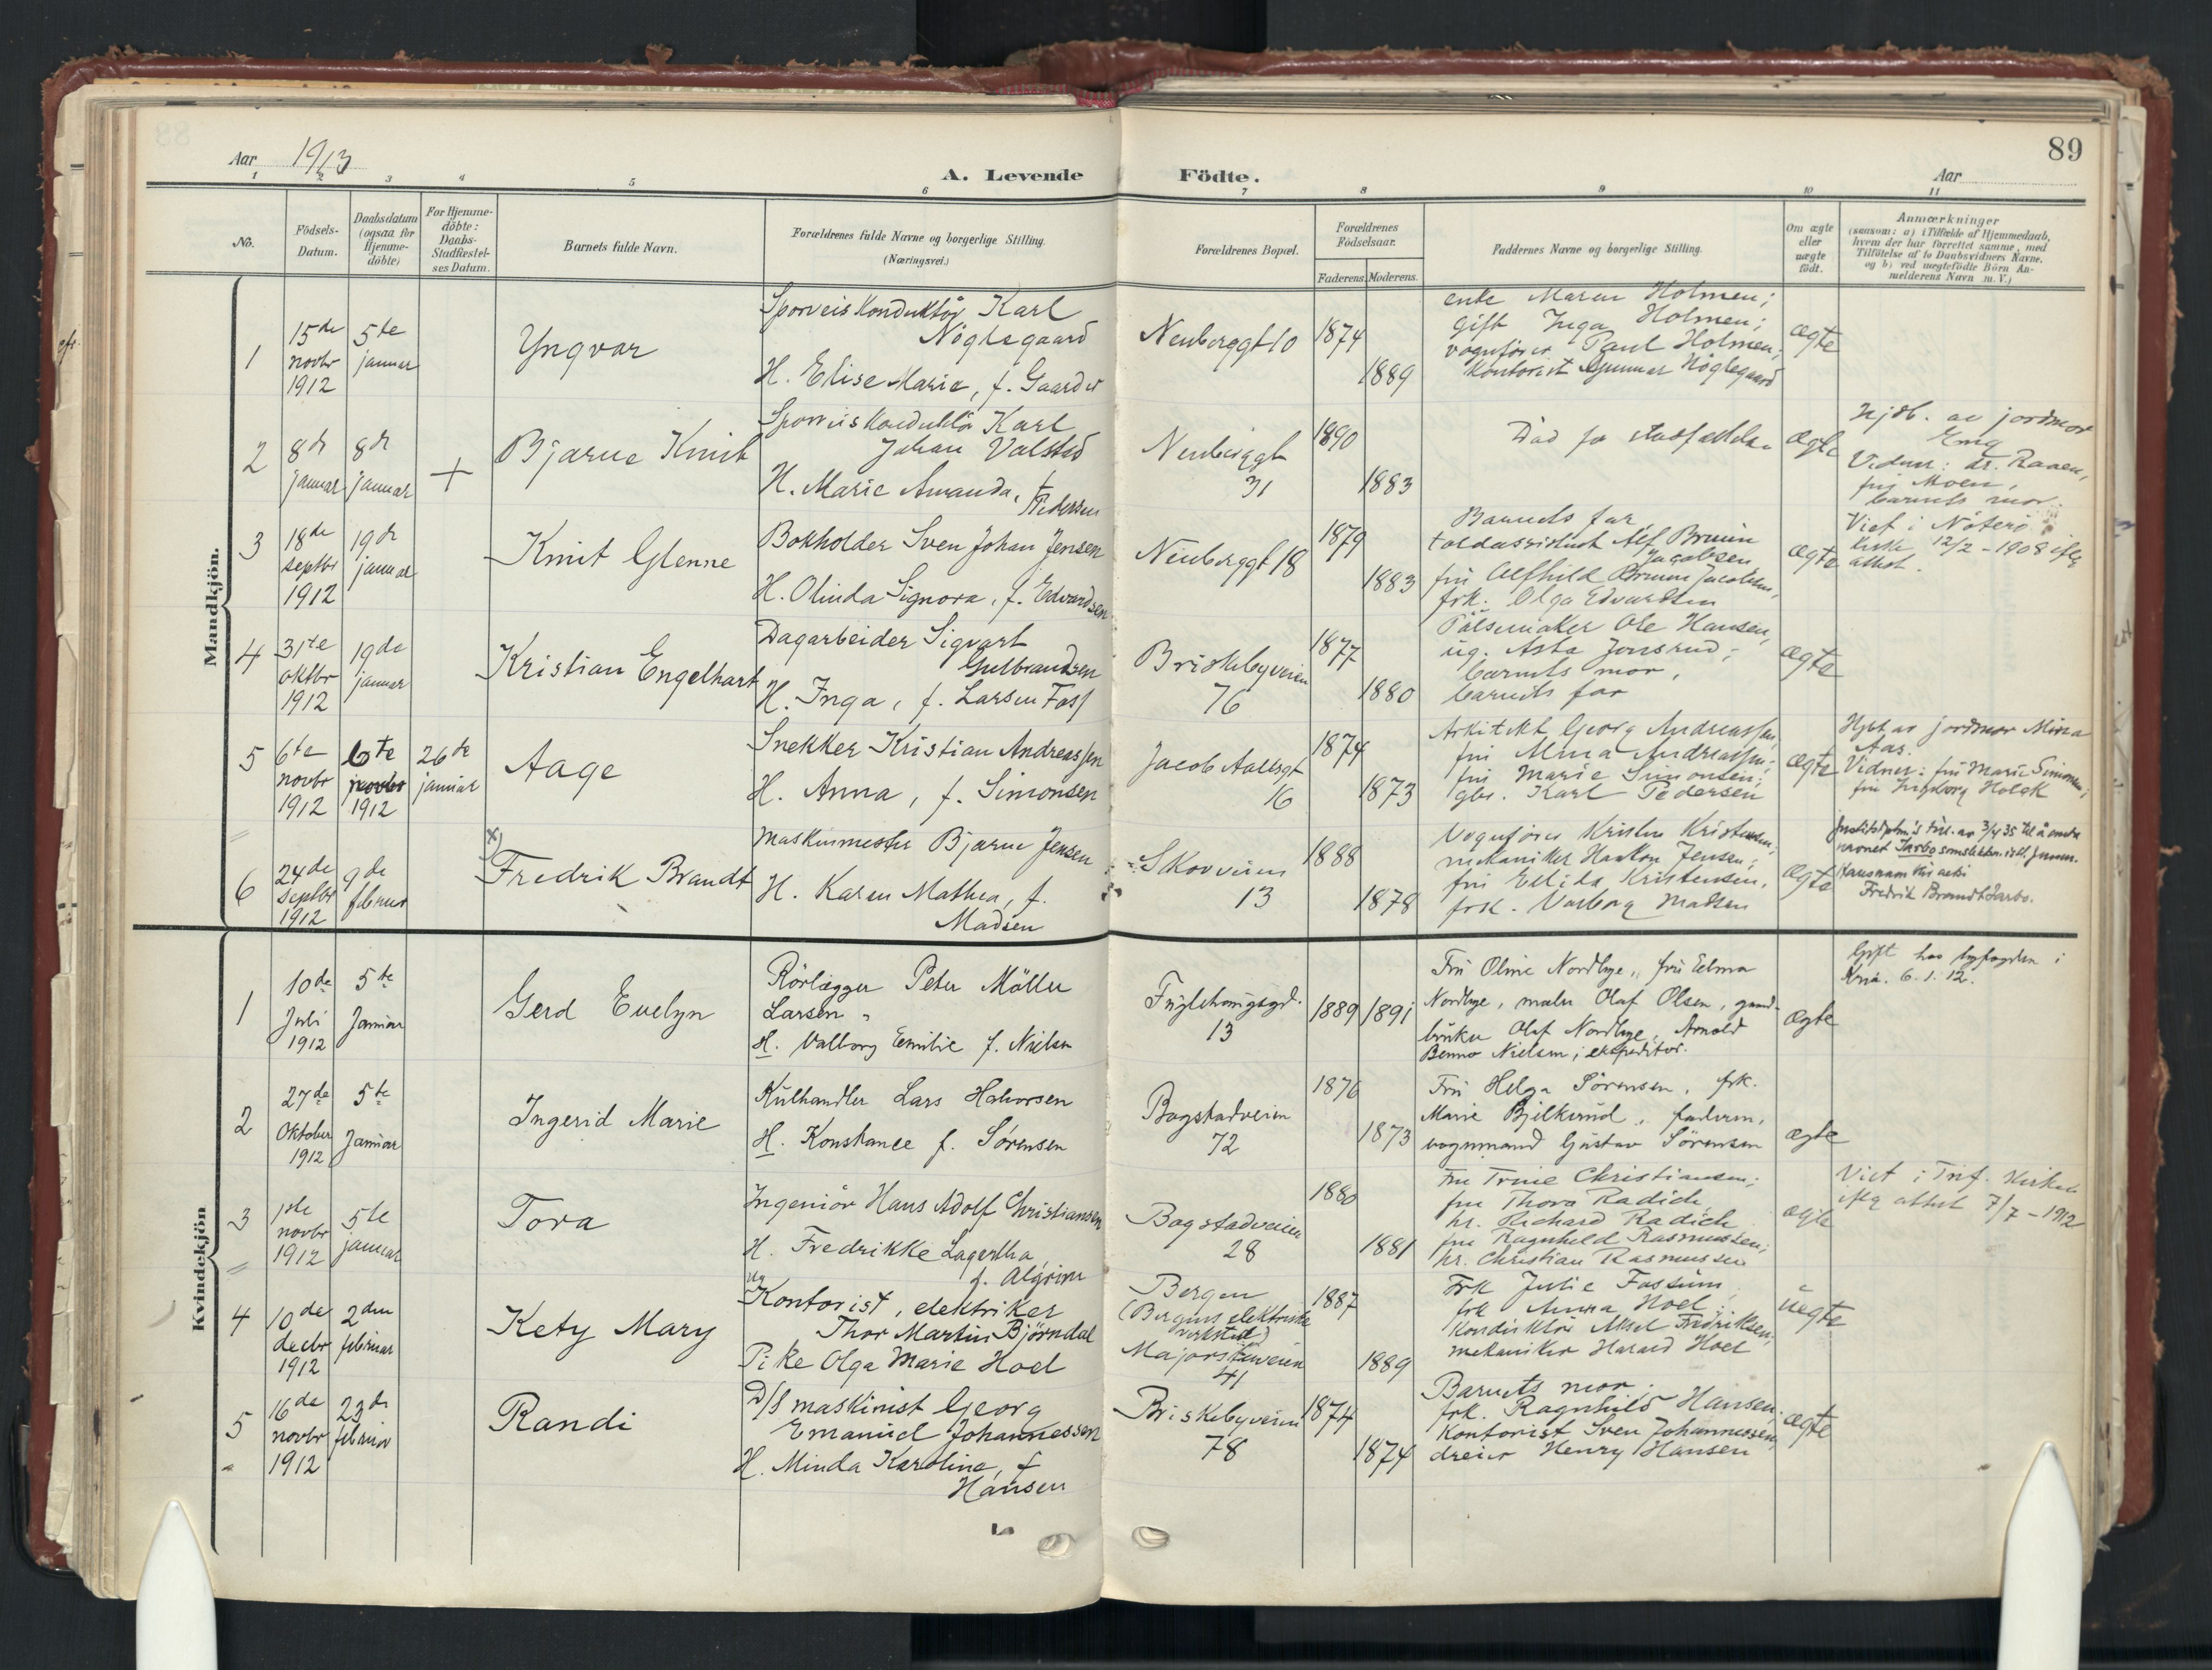 89
Aar 1913
A. Levende Födte.
Aar
1 2 3 4 5 6 7 8 9 10 11
No.
Födsels-Datum.
Daabsdatum (ogsaa for Hjemme-döbte)
For Hjemme-döbte: Daabs-Stadfæstel-ses Datum.
Barnets fulde Navn.
Forældrenes fulde Navne og borgerlige Stilling.
(Næringsvei.)
Forældrenes Bopæl.
Forældrenes Födselsaar.
Faderens. Moderens.
Faddernes Navne og borgerlige Stilling.
Om ægte eller uægte födt.
Anmærkninger
(saasom: a) i Tilfælde af Hjemmedaab, hvem der har forrettet samme, med Tilföielse af to Daabsvidners Navne. og b) ved uægtefödte Börn An-melderens Navn m. V.)
Mandkjön.
1
15de novbr 1912
5te januar
Yngvar
Sporveiskonduktör Karl
Nöglegaard
H. Elise Marie, f. Gaarder
Neuberggt 10
1874
1889
enke Maren Holmen;
gift Inga Holmen;
vognfører Paul Holmen;
Kontorist Gunnar Nöglegaard
ægte
2
8de januar
8de januar
+
Bjarne Knut
Sporveiskonduktör Karl
Johan Valstad
H. Marie Amanda, f.
Pedersen
Neuberggt
31
1890
1883
Død før stadfæstelse
ægte
Hjdb. av jordmor
Eng
Vidner: dr. Raaen,
fru Moen,
barnets mor.
3
18de septbr 1912
19de januar
Knut Glenne
Bokholder Sven Johan Jensen
H. Olinda Signora, f. Edvardsen
Neuberggt 18
1879
1883
Barnets far
toldassistent Alf Bruun
Jacobsen
fru Alfhild Bruun Jacobsen,
frk. Olga Edvardsen
ægte
Viet i Nöterö
kirke 12/2 - 1908 iflg
attest.
4
31te oktbr 1912
19de januar
Kristian Engelhart
Dagarbeider Sigvart
Gulbrandsen
H. Inga, f. Larsen Foss
Briskebyveien
76
1877
1880
Pölsemaker Ole Hansen,
ug. Asta Jonsrud;
barnets mor,
barnets far
ægte
5
6te novbr 1912
6te novbr 1912
26de januar
Aage
Snekker Kristian Andreassen
H. Anna, f. Simonsen
Jacob Aallsgt
16
1874
1873
Arkitekt Georg Andreassen,
fru Alma Andreassen;
fru Marie Simonsen;
gbr. Karl Pedersen
ægte
Hjdt av jordmor Mina
Aas.
Vidner: fru Marie Simonsen;
fru Ingeborg Holck
6
24de septbr 1912
9de februar
x)
Fredrik Brandt
Maskinmester Bjarne Jensen
H. Karen Mathea, f.
Madsen
Skovveien
13
1888
1878
Vognfører Kristen Kristensen;
mekaniker Haakon Jensen;
fru Ellida Kristensen,
frk. Valborg Madsen
ægte
Justitsdptm's till. av 3/4 35 til å endre
navnet Jarbo som slektsn. istf. Jensen.
Hans navn blir altså
Fredrik Brandt Jarbo.
Kvindekjön
1
10de Juli 1912
5te Januar
Gerd Evelyn
Rörlægger Peter Möller
Larsen
H. Valborg Emilie f. Nielsen
Fuglehaugsgd.
13
1889
1891
Fru Oline Nordbye, fru Selma
Nordbye, maler Olaf Olsen, gaard-
bruker Olaf Nordbye, Arnold
Benno Nielsen, ekspeditør.
ægte
Gift hos byfogden i
Kria. 6.1.12.
2
27de Oktober 1912
5te Januar
Ingerid Marie
Kulhandler Lars Halvorsen
H. Konstance f. Sørensen
Bogstadveien
72
1876
1873
Fru Helga Sörensen, frk.
Marie Bjelkerud, faderen,
vognmand Gustav Sörensen
ægte
3
1ste novbr 1912
5te januar
Tora
Ingeniör Hans Adolf Christiansen
H. Fredrikke Lagertha
f. Algrim
Bogstadveien
28
1880
1881
Fru Trine Christiansen;
fru Thora Radich
hr. Richard Radich
fru Ragnhild Rasmussen;
hr. Christian Rasmussen
ægte
Viet i Tref. kirken
iflg attest 7/7 - 1912
4
10de decbr 1912
2den februar
Kety Mary
Ug
Kontorist, elektriker
Thor Martin Bjørndal
Pike Olga Marie Hoel
Bergen
(Bergens elektriske
verksted)
Majorstuveien
41
1887
1889
Frk Julie Fossum
frk Anna Hoel;
Konduktör Aksel Fredriksen;
mekaniker Harald Hoel
uegte
5
16de novbr 1912
23de februar
Randi
D/S maskinist Georg
Emanuel Johannessen
H. Minda Karoline, f
Hansen
Briskebyveien
78
1874
1874
Barnets mor;
frk. Ragnhild Hansen;
Kontorist Sven Johannessen;
dreier Henry Hansen
ægte